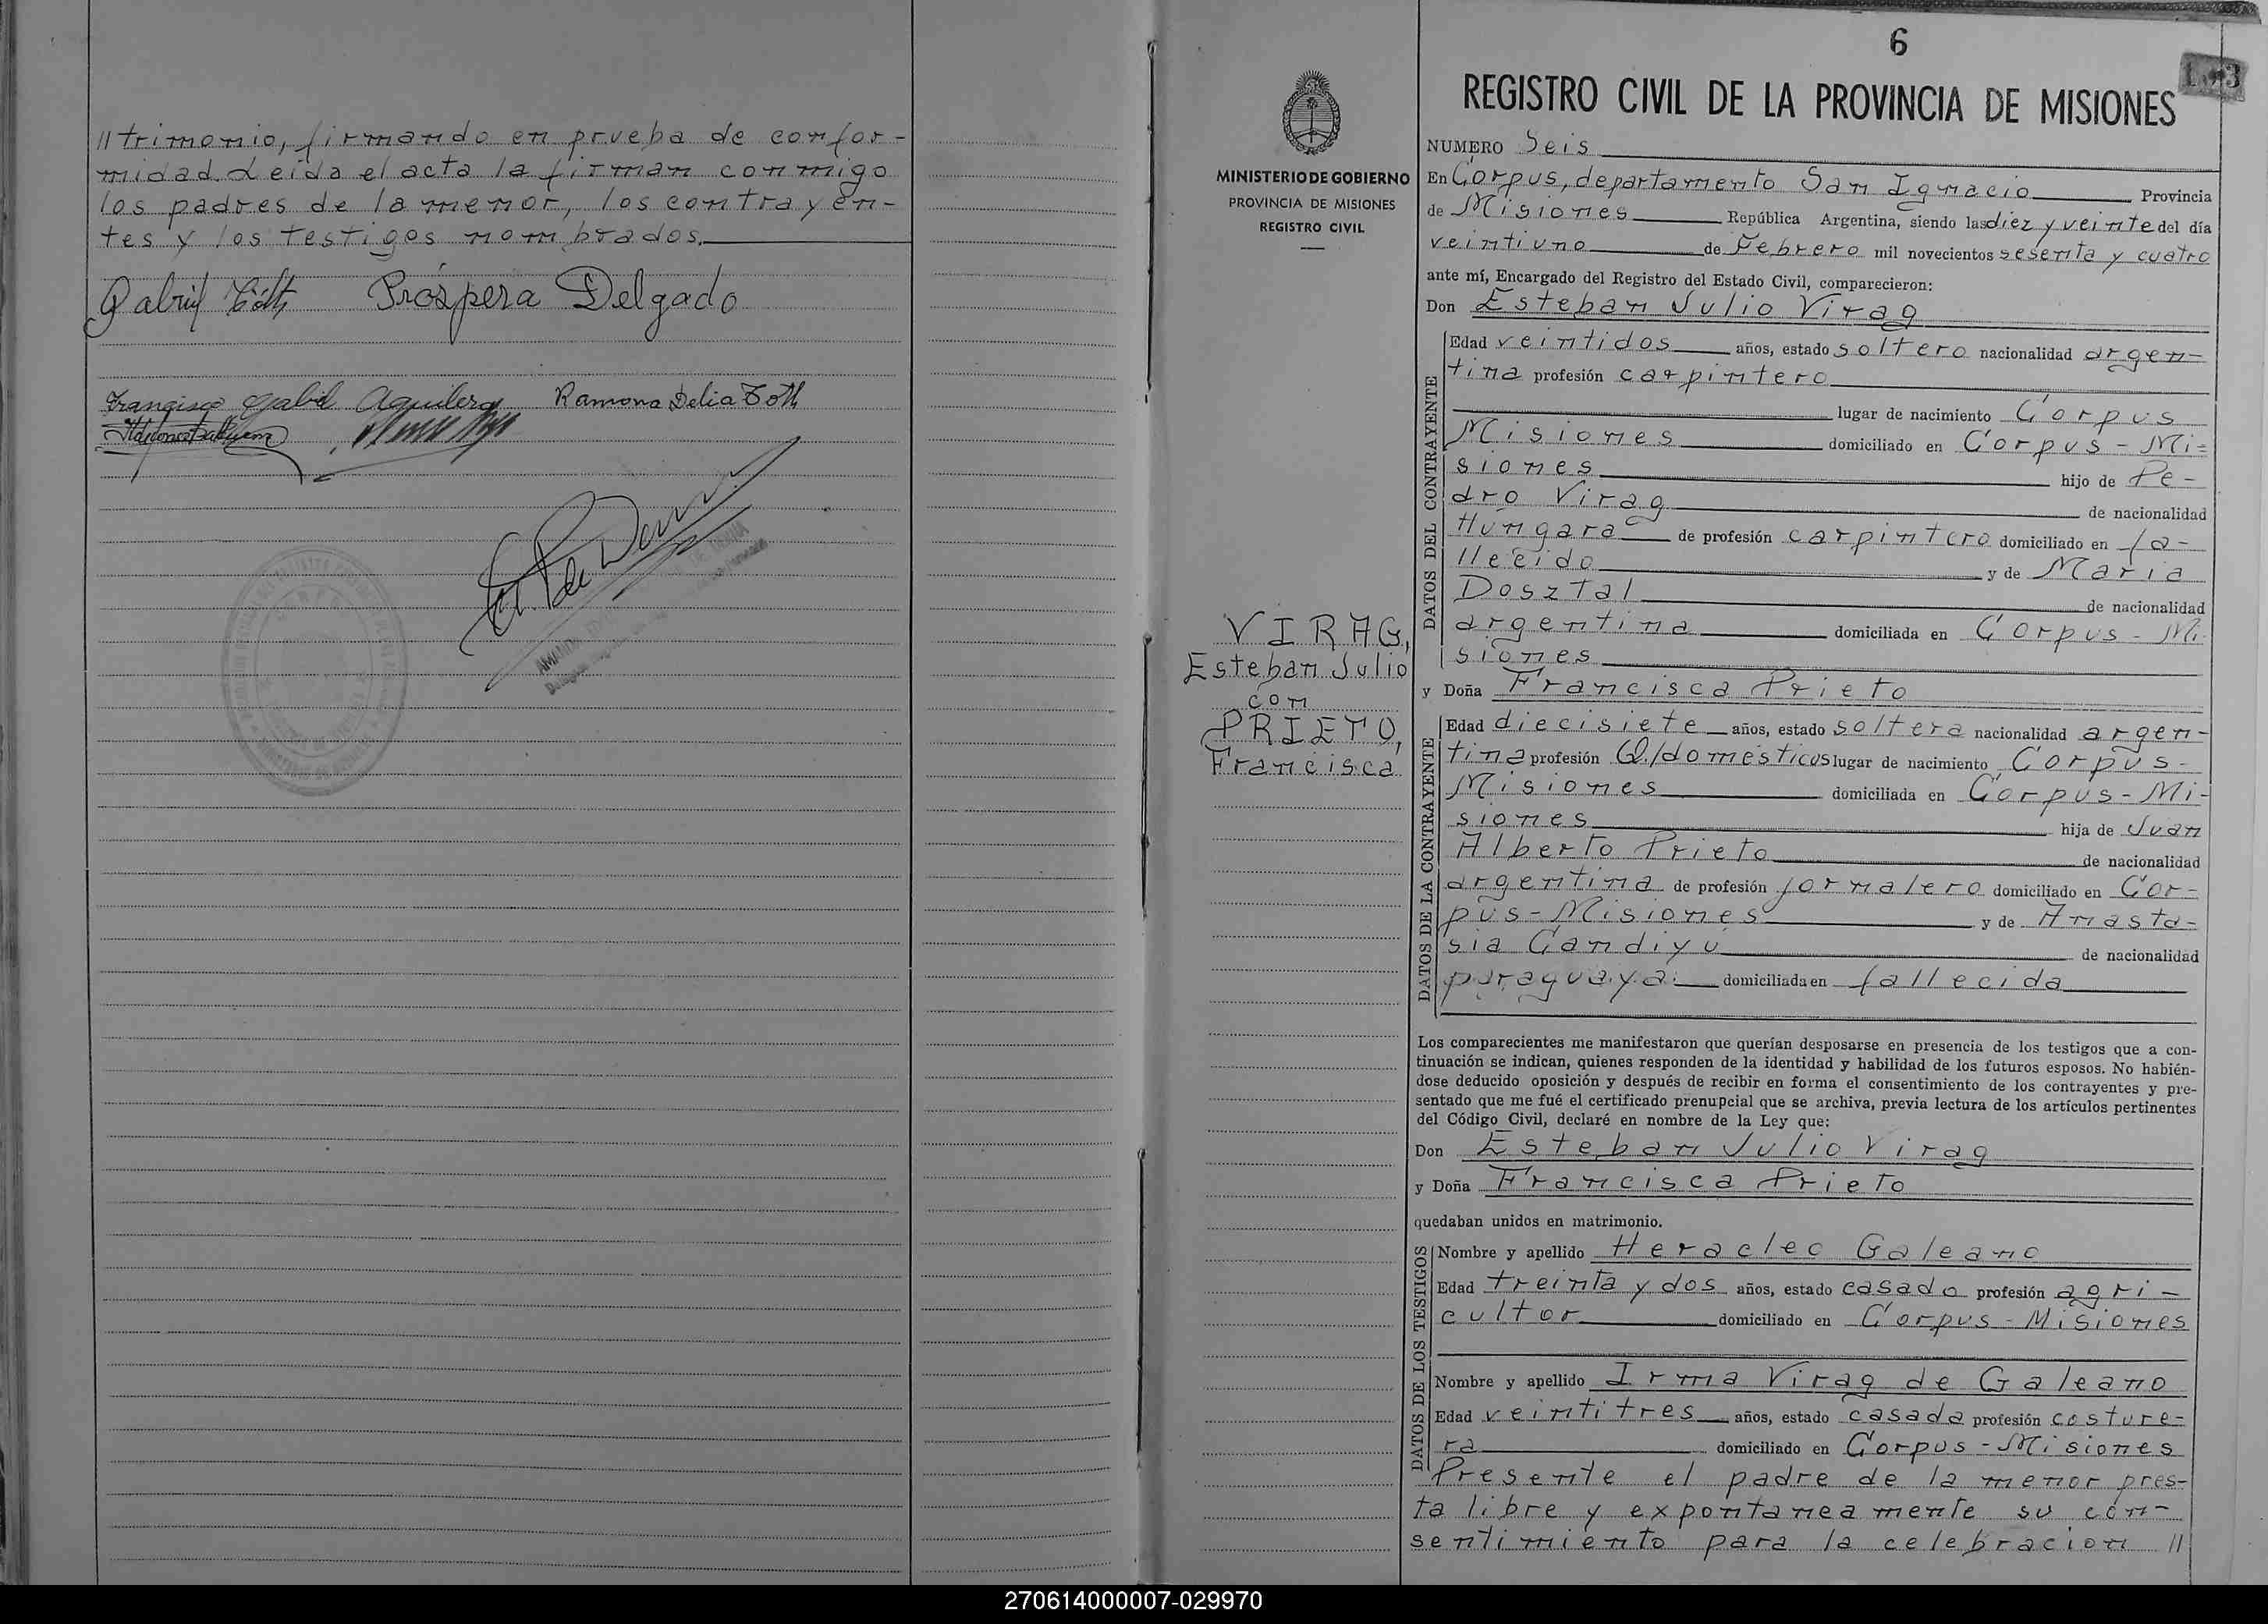 // trimonio, firmando en prueba de confor-
midad. Leida el acta la firman conmigo
los padres de la menor, los contrayen-
tes y los testigos nombrados.
Gabriel Tóth Próspera Delgado
Francisco Gabel Aguilera Ramona Delia Toth
6
REGISTRO CIVIL DE LA PROVINCIA DE MISIONES
MINISTERIO DE GOBIERNO
PROVINCIA DE MISIONES
REGISTRO CIVIL
VIRAG,
Esteban Julio
con
PRIETO,
Francisca
NUMERO Seis
En Corpus, departamento San Ignacio Provincia
de Misiones República Argentina, siendo las diez y veinte del día
veintiuno de Febrero mil novecientos sesenta y cuatro
ante mí, Encargado del Registro del Estado Civil, comparecieron:
Don Esteban Julio Virag
DATOS DEL CONTRAYENTE
Edad veintidos años, estado soltero nacionalidad argen-
tina profesión carpintero
lugar de nacimiento Corpus
Misiones domiciliado en Corpus - Mi=
siones hijo de Pe-
dro Virag de nacionalidad
Húngara de profesión carpintero domiciliado en fa-
llecido y de Maria
Dosztal de nacionalidad
argentina domiciliada en Corpus - Mi-
siones
y Doña Francisca Prieto
DATOS DE LA CONTRAYENTE
Edad diecisiete años, estado soltera nacionalidad argen-
tina profesión Q./domésticos lugar de nacimiento Corpus-
Misiones domiciliada en Corpus - Mi-
siones hija de Juan
Alberto Prieto de nacionalidad
argentina de profesión jornalero domiciliado en Cor-
pus - Misiones y de Anasta-
sia Candiyú de nacionalidad
paraguaya domiciliada en fallecida
Los comparecientes me manifestaron que querían desposarse en presencia de los testigos que a con-
tinuación se indican, quienes responden de la identidad y habilidad de los futuros esposos. No habién-
dose deducido oposición y después de recibir en forma el consentimiento de los contrayentes y pre-
sentado que me fué el certificado prenupcial que se archiva, previa lectura de los artículos pertinentes
del Código Civil, declaré en nombre de la Ley que:
Don Esteban Julio Virag
y Doña Francisca Prieto
quedaban unidos en matrimonio.
DATOS DE LOS TESTIGOS
Nombre y apellido Heracleo Galeano
Edad treinta y dos años, estado casado profesión agri-
cultor domiciliado en Corpus - Misiones
Nombre y apellido Irma Virag de Galeano
Edad veintitres años, estado casada profesión costure-
ra domiciliado en Corpus - Misiones
Presente el padre de la menor pres-
ta libre y expontaneamente su con-
sentimiento para la celebracion //
270614000007-029970